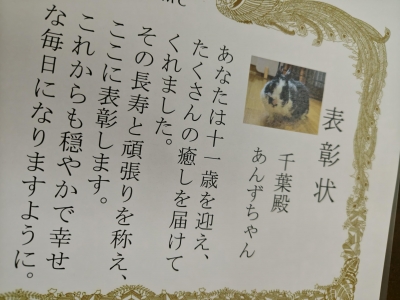 表彰状
千葉殿
あんずちゃん
あなたは十一歳を迎え、
たくさんの癒しを届けて
くれました。
その長寿と頑張りを称え、
ここに表彰します。
これからも穏やかで幸せ
な毎日になりますように。